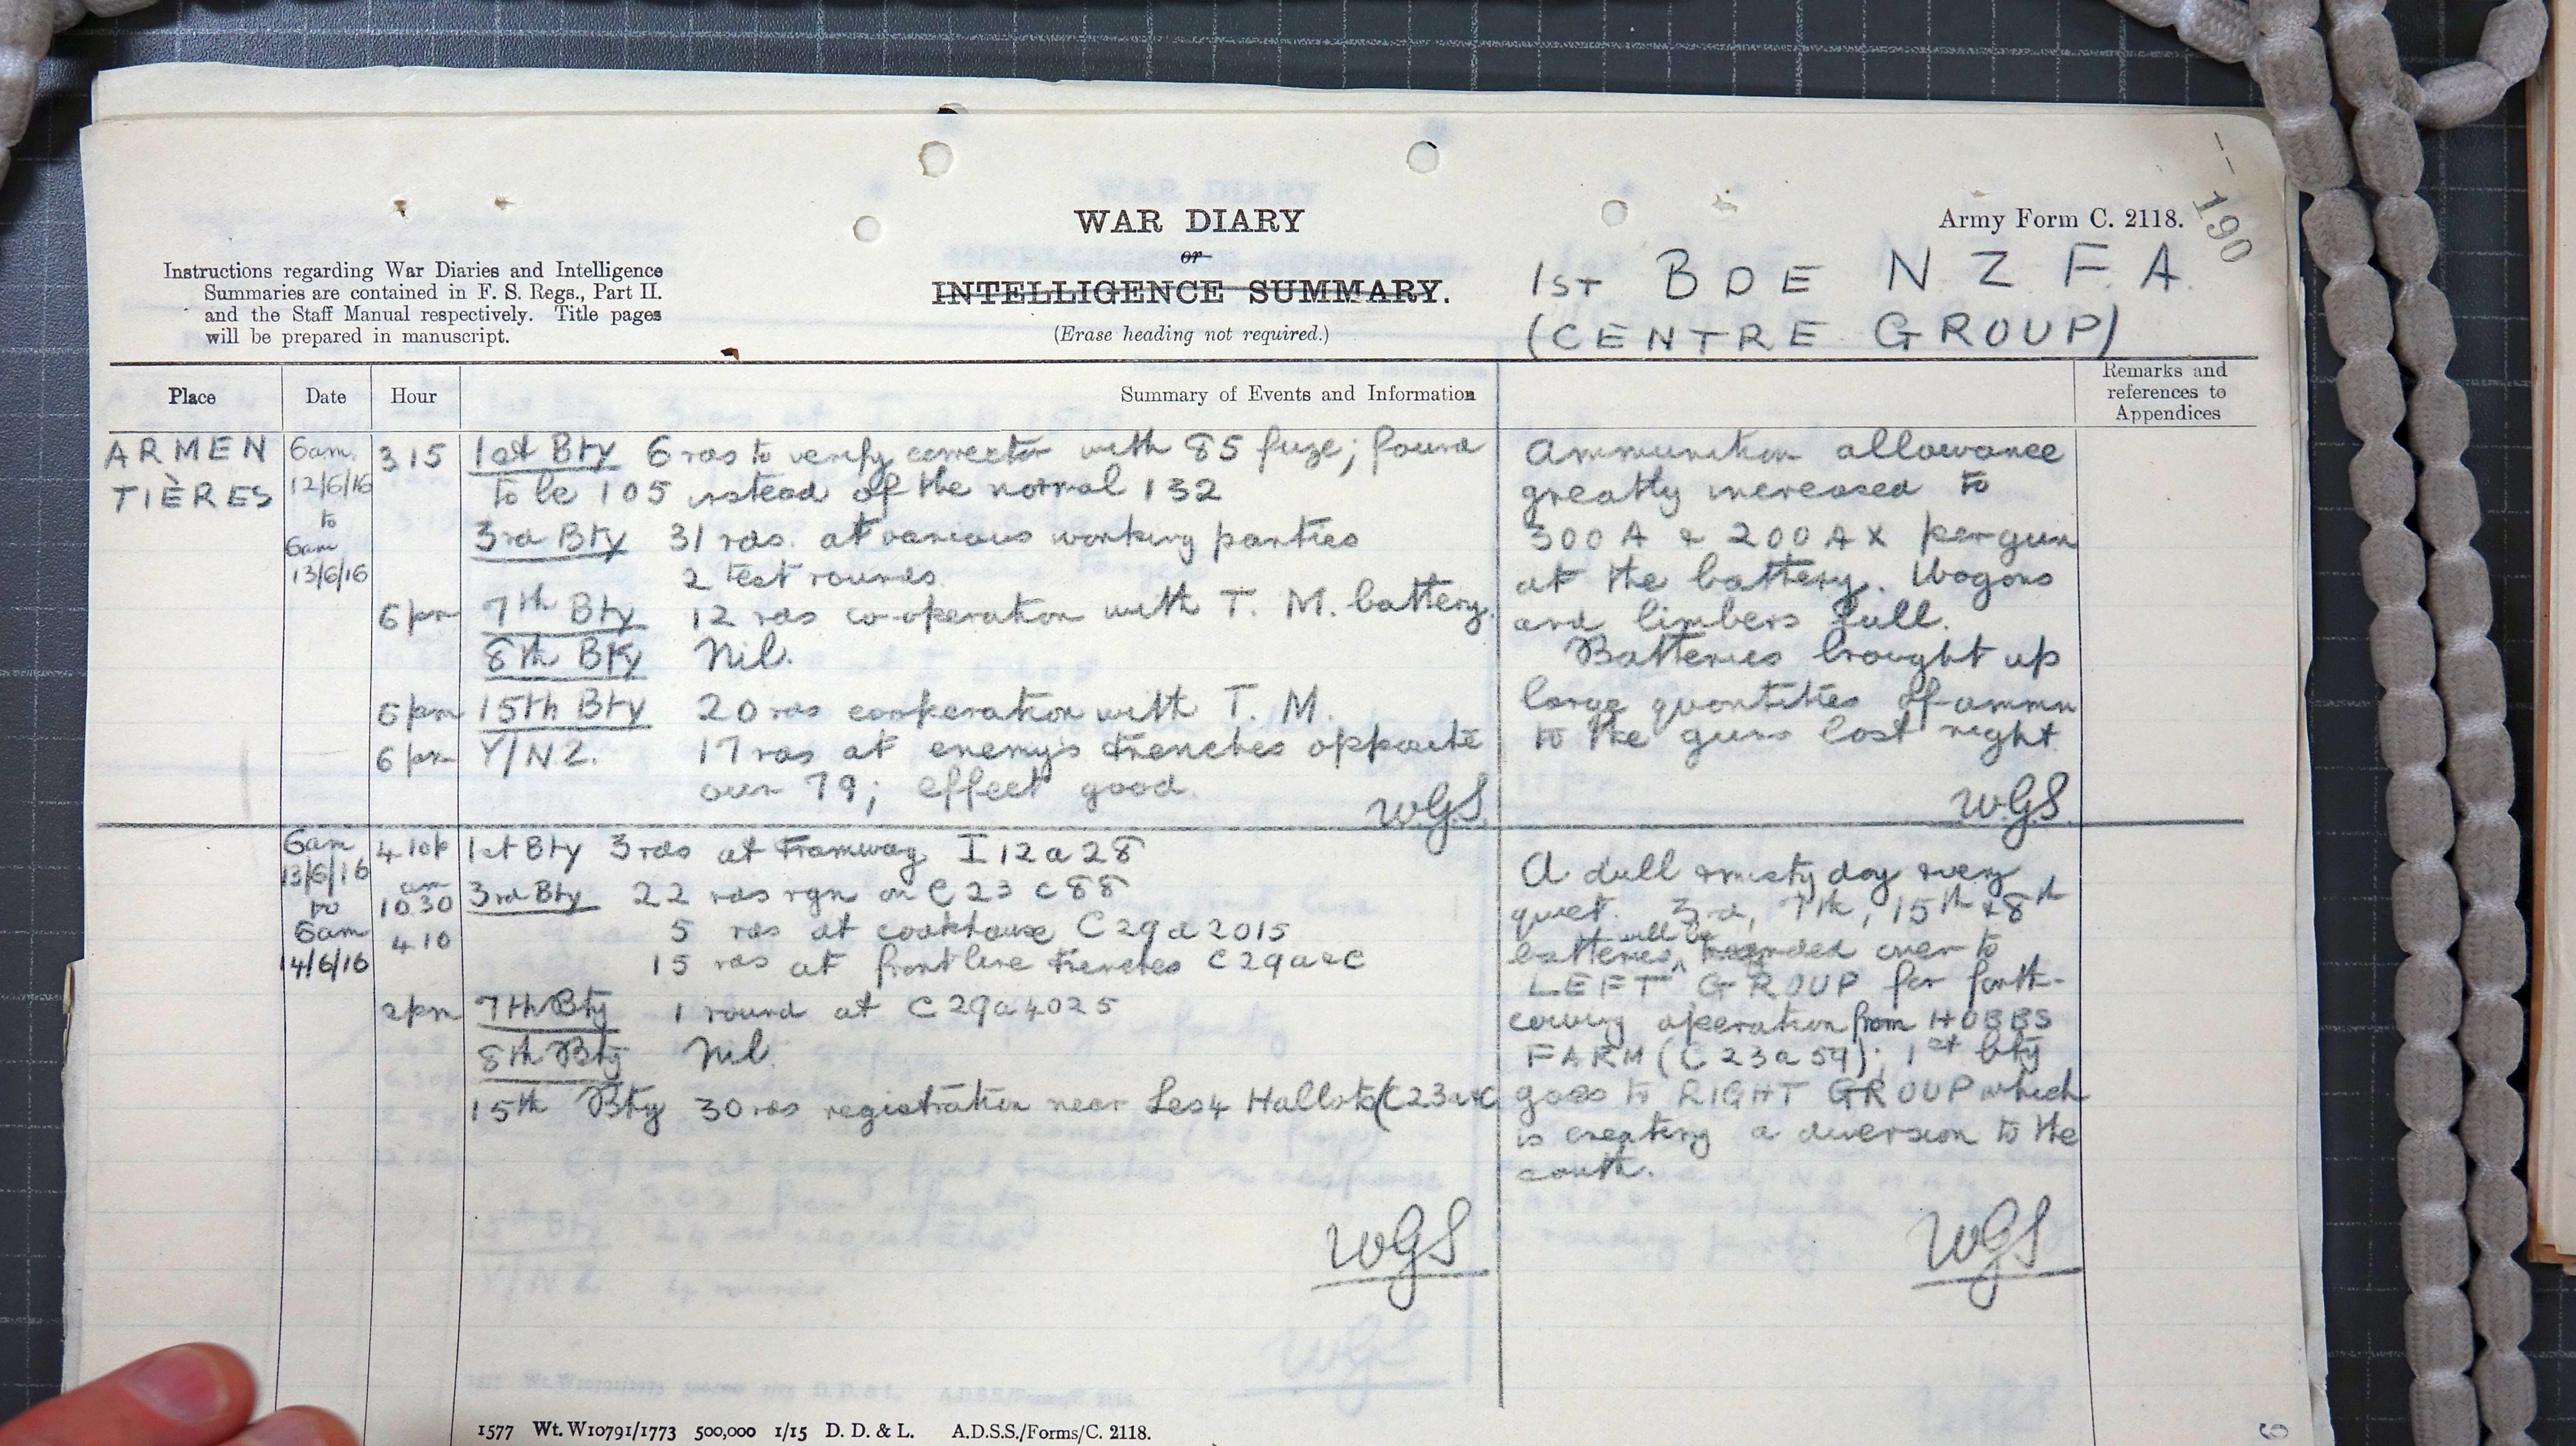 190
WAR DIARY
or
INTELLIGENCE SUMMARY.
(Erase heading not required.)
Army Form C. 2118.
Instructions regarding War Diaries and Intelligence
Summaries are contained in F. S. Regs., Part II.
and the Staff Manual respectively. Title pages
will be prepared in manuscript.
1ST BDE NZFA.
(CENTRE GROUP)
Place Date Hour Summary of Events and Information
Remarks and
references to
Appendices
ARMEN
TIÈRES
6am.
12/6/16
to
6am
13/6/16
3 15 1st Bty 6 rds to verify corrector with 85 fuze; found
to be 105 instead of the normal 132
3rd Bty 31 rds. at various working parties
2 test rounds.
6 pm 7th Bty 12 rds co-operation with T. M. battery.
8th Bty Nil.
6 pm 15th Bty 20 rds cooperation with T. M.
6 pm Y/NZ. 17 rds at enemy's trenches opposite
our 79; effect good.
W.G.S.
Ammunition allowance
greatly increased to
300 A & 200 AX per gun
at the battery. Wagons
and limbers full.
Batteries brought up
large quantities of ammn
to the guns last night.
W.G.S.
6am
13/6/16
to
6am
14/6/16
4 10p 1st Bty 3 rds at tramway I 12 a 28
am
10 30 3rd Bty 22 rds rgn on C 23 c 88
4 10 5 rds at cookhouse C 29 d 2015
15 rds at front line trenches C 29 a & c
2 pm 7th Bty 1 round at C 29 a 4025
8th Bty Nil.
15th Bty 30 rds registration near Les 4 Hallots (C 23 a & c
WGS
A dull misty day & very
quiet. 3rd, 7th, 15th & 8th
batteries will be handed over to
LEFT GROUP for forth-
coming operation from HOBBS
FARM (C 23 a 59); 1st bty
goes to RIGHT GROUP which
is creating a diversion to the
south.
WGS
1577 Wt. W10791/1773 500,000 1/15 D. D. & L. A.D.S.S./Forms/C. 2118.